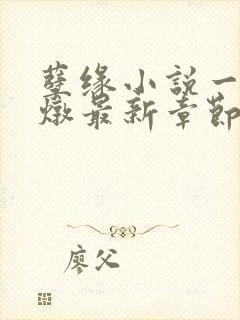 孽缘小説一
燉最新章節
廖父